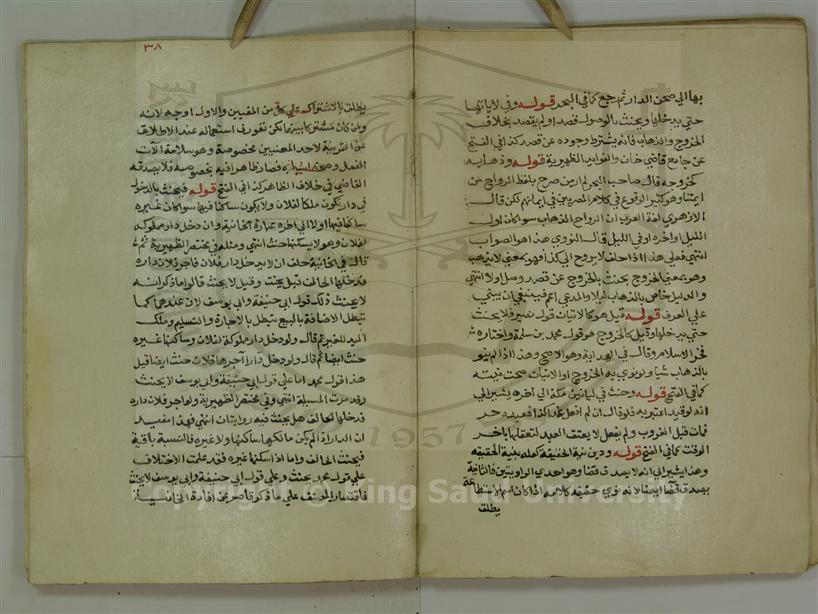 بها الي صحن الدار ثم رجع كما في البحر قوله وفي لا ياتيها
حتي يدخلها ويحنث بالوصول قصد او لم يقصد بخلاف
الخروج والذهاب فانه يشترط وجوده عن قصد كذا في الفتح
عن جامع قاضي خان والفوايد الظهيرية قوله وذهابه
كخروجه قال صاحب البحر لم ار من صرح بلفظ الرواح من
ايمتنا وهو كثير الوقوع في كلام المصريين في ايمانهم لكن قال
الازهري لغة العرب ان الرواح الذهاب سوا كان اول
الليل او اخره او في الليل قال النووي هذا هو الصواب
انتهي فعلي هذا اذا حلف لا يروح الي كذا فهو بمعني لا يذهب
وهو بمعني الخروج يحنث بالخروج عن قصد وصل او لا انتهي
والدليل خاص بالذهاب ليلا والمدعي اعم فينبغي ان يبتني
علي العرف قوله قيل هو كالاتيان قوله نصير فلا يحنث
حتي يدخلها وقيل كالخروج هو قوله محمد بن سلمة واختاره
فخر الاسلام وقال في الهداية وهو الاصح وهذا اذا لم ينو
بالذهاب شيا ولو نوي به الخروج او الاتيان صحت نيته
كما في الفتح قوله وحنث في لياتين مكة الي اخره يشير الي
انه لو قيد اعتبر به فلو قال ان لم افعل غدا كذا فعبده حر
فمات قبل الغروب ولم يفعل لا يعتق العبد لتعلقها باخر
الوقت كما في الفتح قوله ودين نية الحقيقة كعلة بنية الحقيقه
وهذا يشير الي انه لا يصدق قضا وهو احدي الروايتين والثانية
يصدق قضا ايضا لانه نوي حقيقة كلامه اذا كان اسم الاستطاعة
يطلق
٣٨
يطلق بالاشتراك علي كل من المعنيين والاول اوجه لانه
وان كان مشتركا بينهما لكن تعورف استعماله عند الاطلاق
عن القرينة لاحد المعنيين بخصوصة وهو سلامة الات
الفعل وصحة اسبابه فصار ظاهرا فيه بخصوصه فلا يصدقه
القاضي في خلاف الظاهر كذا في الفتح قوله فيحنث بالدخول
في دار يكون ملكا لفلان ولا يكون ساكنا فيها سوا كان غيره
ساكنا فيها او لا الي اخره عبارة الخانية وان دخل دار مملوكة
لفلان وهو لا يسكنها حنث انتهي ومثله في مختصر الظهيرية ثم
قال في الخانية حلف ان لا يدخل دار فلان فاجر فلان داره
فدخلها الحالف قيل يحنث وقيل لا يحنث قالوا ما ذكر انه
لا يحنث ذلك قول ابي حنيفة وابي يوسف لان عندهما كما
تبطل الاضافة بالبيع تبطل بالاجارة والتسليم وملك
اليد للغير ثم قال ولو دخل دار مملوكة لفلان وساكنها غيره
حنث ايضا ثم قال ولو دخل دارا آجرها فلان حنث ايضا قيل
هذا قول محمد اما علي قول ابي حنيفة وابي يوسف لا يحنث
وقد مرت المسيلة انتهي وفي مختصر الظهيرية ولو اجر فلان داره
فدخلها الحالف هل يحنث فيه روايتان انتهي فهذا مفيد
ان الدار اذا لم يكن مالكها ساكنها ولا غيره فالنسبة باقية
فيحنث الحالف واما اذا سكنها غيره فقد علمت الاختلاف
علي قول محمد يحنث وعلي قول ابي حنيفة وابي يوسف لا يحنث
فاقتصار المصنف علي ما ذكر قاصر عن افادة
1957
King Saud University